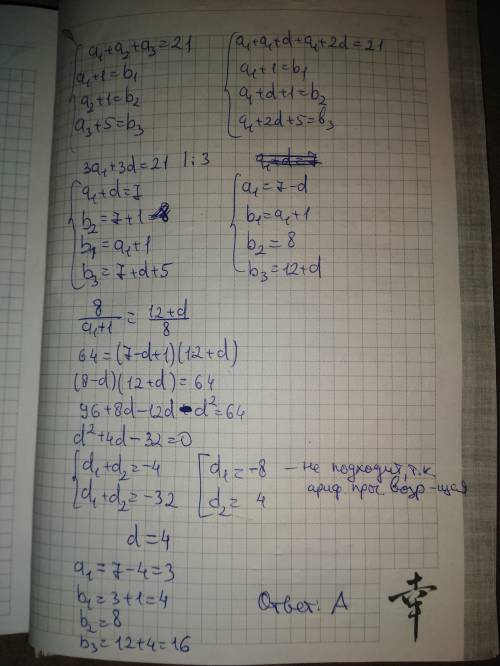 a₁+a₂+a₃=21
a₁+1=b₁
a₂+1=b₂
a₃+5=b₃
a₁+a₁+d+a₁+2d=21
a₁+1=b₁
a₁+d+1=b₂
a₁+2d+5=b₃
3a₁+3d=21 | :3
a₁+d=7
a₁+d=7
b₂=7+1=8
b₁=a₁+1
b₃=7+d+5
a₁=7-d
b₁=a₁+1
b₂=8
b₃=12+d
8/(a₁+1) = (12+d)/8
64=(7-d+1)(12+d)
(8-d)(12+d)=64
96+8d-12d-d²=64
d²+4d-32=0
d₁+d₂=-4
d₁+d₂=-32
d₁=-8 — не подходит, т.к
d₂=4 ариф. прог. возр-щая
d=4
a₁=7-4=3
b₁=3+1=4
b₂=8
b₃=12+4=16
Ответ: А
幸